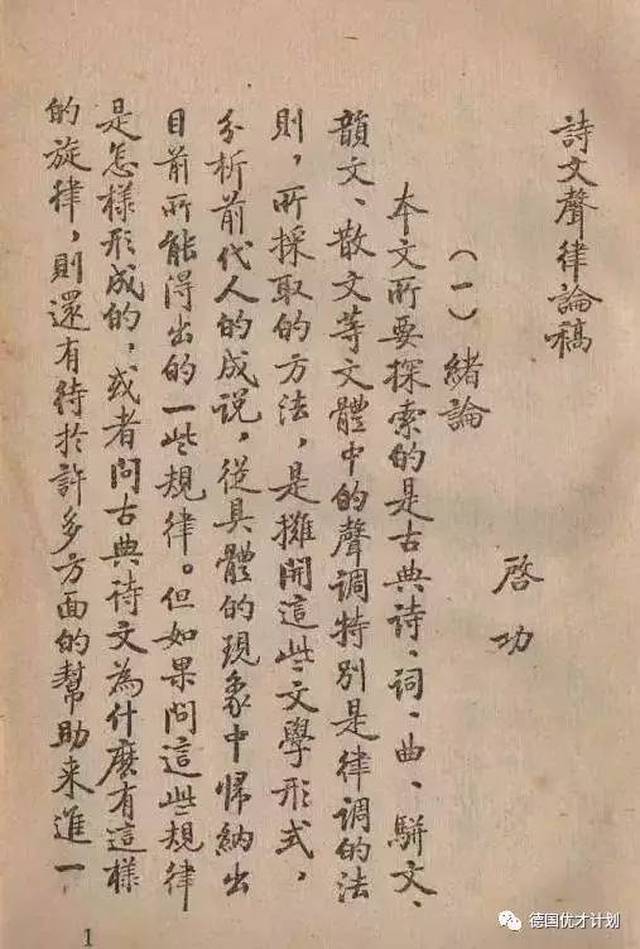 詩文聲律論稿
啓功
(一)緒論
本文所要探索的是古典詩、詞、曲、駢文、
韻文、散文等文體中的聲調特別是律調的法
則,所採取的方法,是攤開這些文學形式,
分析前代人的成説,從具體的現象中歸納出
目前所能得出的一些規律。但如果問這些規律
是怎樣形成的,或者問古典詩文為什麽有這樣
的旋律,則還有待於許多方面的幫助来進一
1
德国优才计划